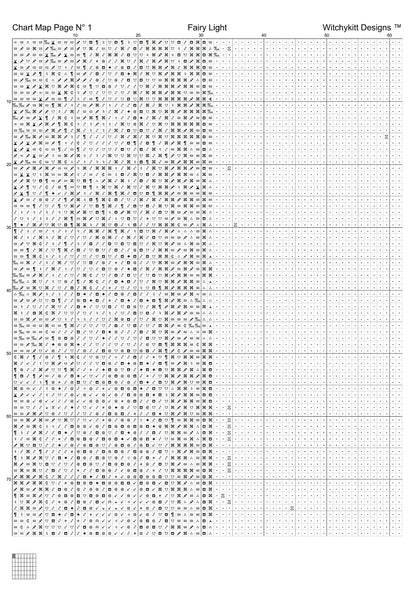 Chart Map Page N° 1 Fairy Light Witchykitt Designs ™
10 20 30 40 50 60
10
20
30
40
50
60
70